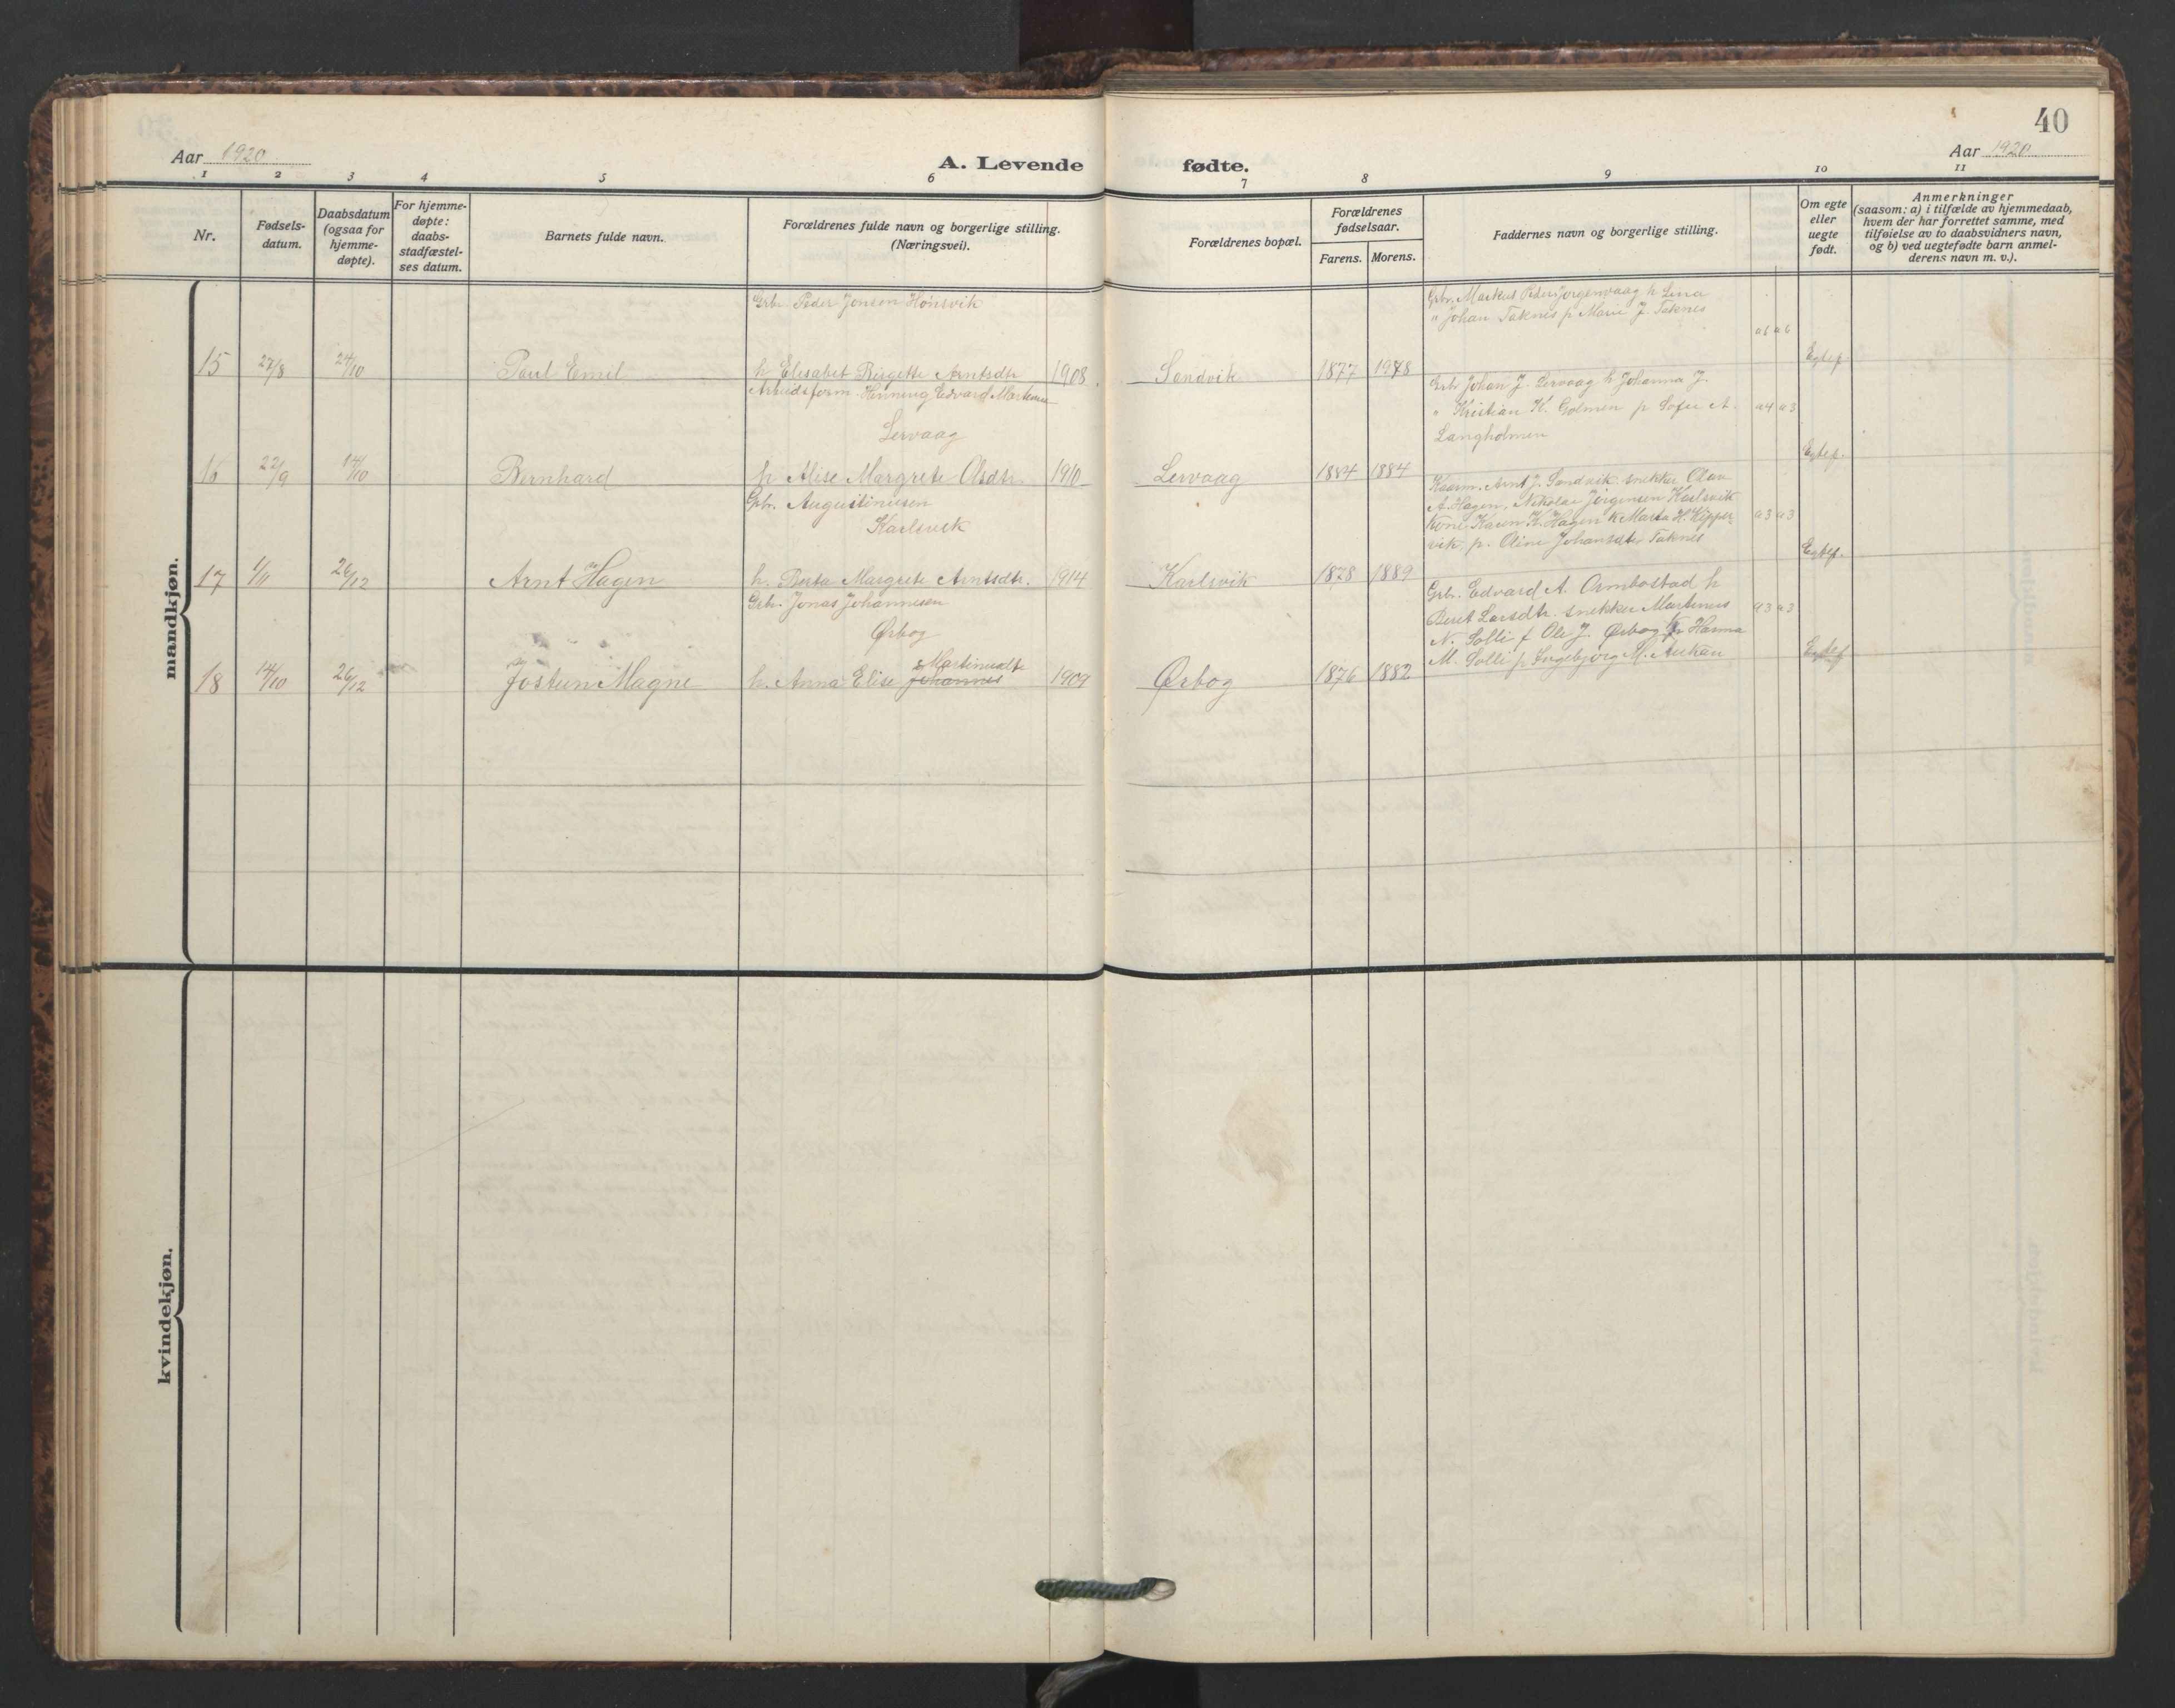 40
Aar 1920
A. Levende
fødte.
Aar 1920
1 2 3 4 5 6
7 8 9 10 11
Nr.
Fødsels-
datum.
Daabsdatum
(ogsaa for
hjemme-
døpte).
For hjemme-
døpte:
daabs-
stadfæstel-
ses datum.
Barnets fulde navn.
Forældrenes fulde navn og borgerlige stilling.
(Næringsvei).
Forældrenes bopæl.
Forældrenes
fødselsaar.
Farens. Morens.
Faddernes navn og borgerlige stilling.
Om egte
eller
uegte
født.
Anmerkninger
(saasom: a) i tilfælde av hjemmedaab,
hvem der har forrettet samme, med
tilføielse av to daabsvidners navn,
og b) ved uegtefødte barn anmel-
derens navn m. v.).
mandkjøn.
Grbr. Peder Jonsen Honsvik
15 27/8 24/10 Paul Emil h Elisabet Birgitte Arntsdtr 1908
Sandvik 1877
Grbr. Markus Peders Jørgenvaag h Lina
" Johan Taknes p Marie J. Taknes
a6 a6
Egtef.
Arbeidsform. Henning Edvard Martinus
Lervaag
16 22/9 14/10 Bernhard h Alise Margrete Olsdtr. 1910
Lervaag 1884 1884
Grbr Johan J. Lervaag h Johanna J.
" Kristian K. Golmen p Sofie A.
Langholmen
a4 a3
Egtef.
Grbr. Augustinusen
Karlsvik
17 1/11 26/12 Arnt Hagen h. Berta Margrete Arntsdtr. 1914
Karlsvik 1878 1889
Kaarm. Arnt J. Sandvik snekker Olav
A. Hagen, Nikolai Jørgensen Karlsvik
Kone Karen K. Hagen K Marta H. Kipper-
vik p. Oline Johansdtr Taknes
a3 a3
Egtef.
Grbr. Jonas Johannesen
Ørbog
18 14/10 26/12 Jostein Magne h. Anna Elise Johannes Martinusdtr 1909
Ørbog 1876 1882
Grbr. Edvard A. Ormbostad h
Berit Larsdtr. snekker Martinus
N. Solli f Ole J. Ørbog Hanna
M. Solli p Ingebjørg M. Aukan
a3 a3
Egtef
kvindekjøn.